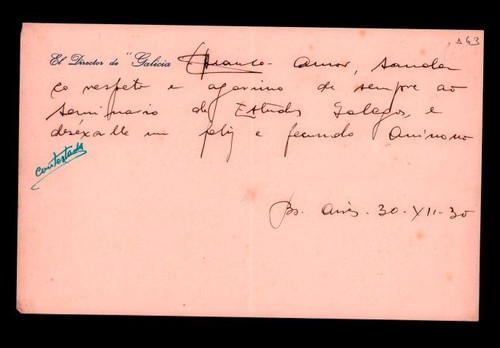 163
El Director de "Galicia Blanco-Amor, saudan
co respeto e agarimo de sempre ao
Seminario de Estudos Galegos, e
deséxalle un feliz e fecundo Aninovo
contestada
Bs. Aires. 30-XII-30